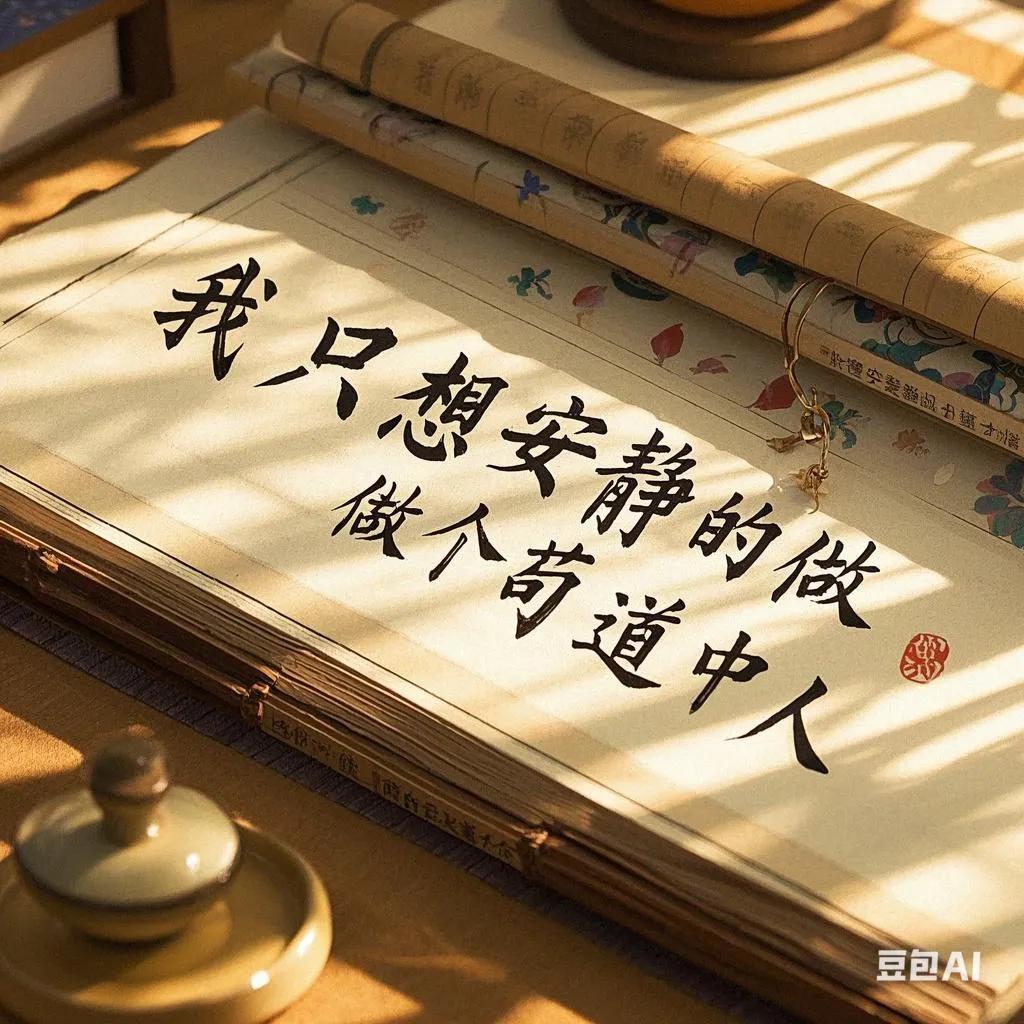 我只想安静的做
做个苟道中人
豆包AI